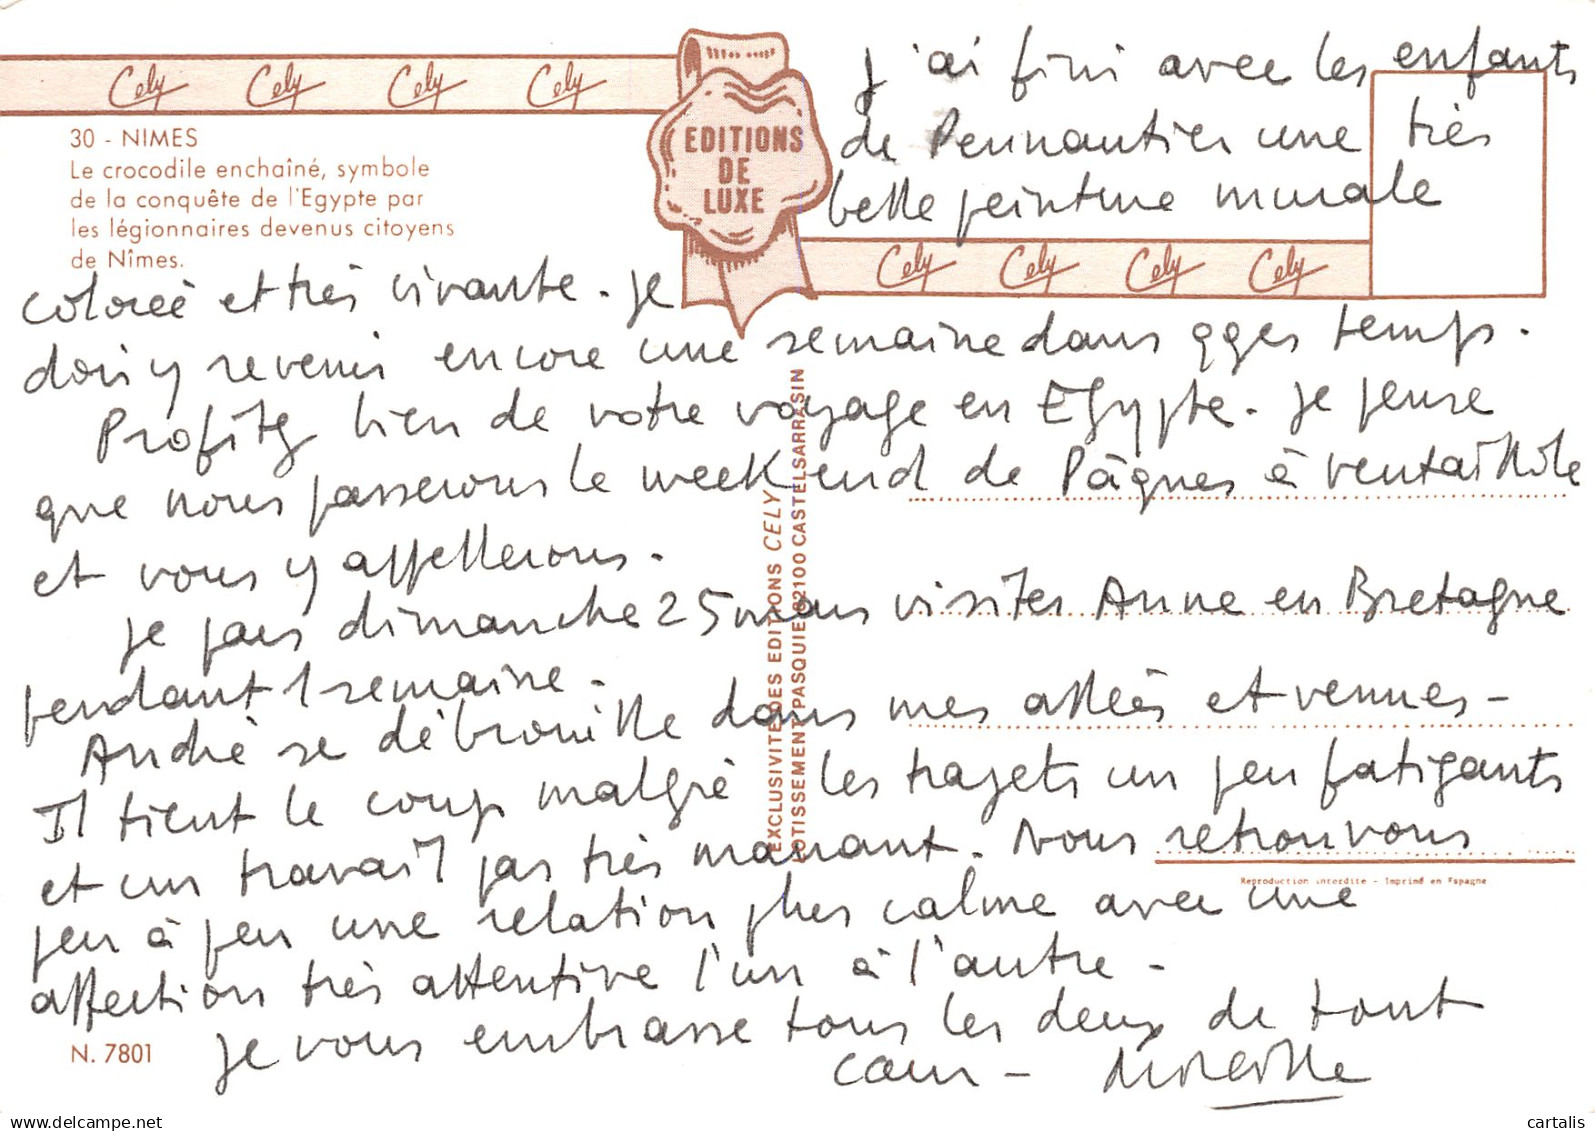 Cely Cely Cely Cely
EDITIONS
DE
LUXE
30 - NIMES
Le crocodile enchaîné, symbole
de la conquête de l'Egypte par
les légionnaires devenus citoyens
de Nîmes.
Cely Cely Cely Cely
J'ai fini avec les enfants
de Pennautier une très
belle peinture murale
colorée et très vivante. Je
dois y revenir encore une semaine dans qqes temps.
Profitez bien de votre voyage en Egypte. Je pense
que nous passerons le week end de Pâques à
et vous y appellerons.
Je pars dimanche 25 mars visiter Anne en Bretagne
pendant 1 semaine.
André se débrouille dans mes allées et venues -
Il tient le coup malgré les trajets un peu fatigants
et un travail pas très marrant. Nous retrouvons
peu à peu une relation plus calme avec une
affection très attentive l'un à l'autre -
Je vous embrasse tous les deux de tout
cœur -
EXCLUSIVITE DES EDITIONS CELY
LOTISSEMENT PASQUIE 82100 CASTELSARRASIN
Reproduction interdite - Imprimé en Espagne
N. 7801
delcampe.net
cartalis